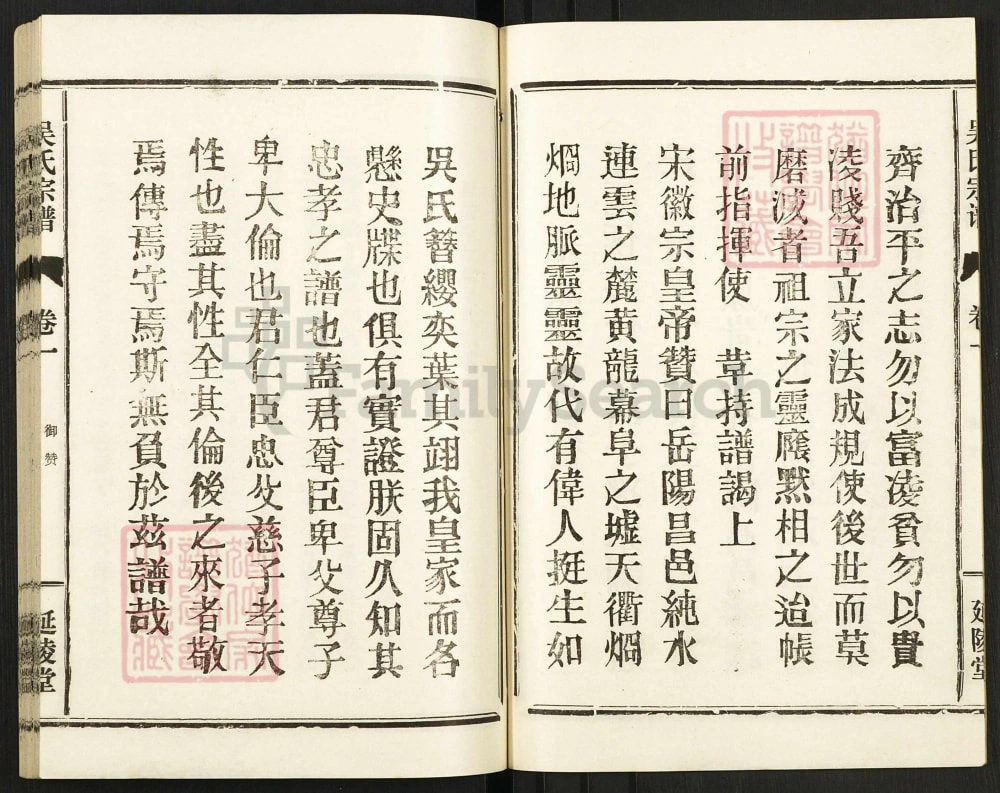 齊治平之志勿以富凌貧勿以貴
凌賤吾立家法成規使後世而莫
磨滅者祖宗之靈廕默相之迨帳
前指揮使 草持譜謁上
宋徽宗皇帝贊曰岳陽昌邑純水
連雲之麓黃龍幕阜之墟天衢烱
烱地脈靈靈故代有偉人挺生如
吳氏簪纓奕葉其翊我皇家而各
懸史牒也俱有實證朕固久知其
忠孝之譜也蓋君尊臣卑父尊子
卑大倫也君仁臣忠父慈子孝天
性也盡其性全其倫後之來者敬
焉傳焉守焉斯無負於茲譜哉
吴氏宗譜
卷一
御赞
延陵堂
FamilySearch